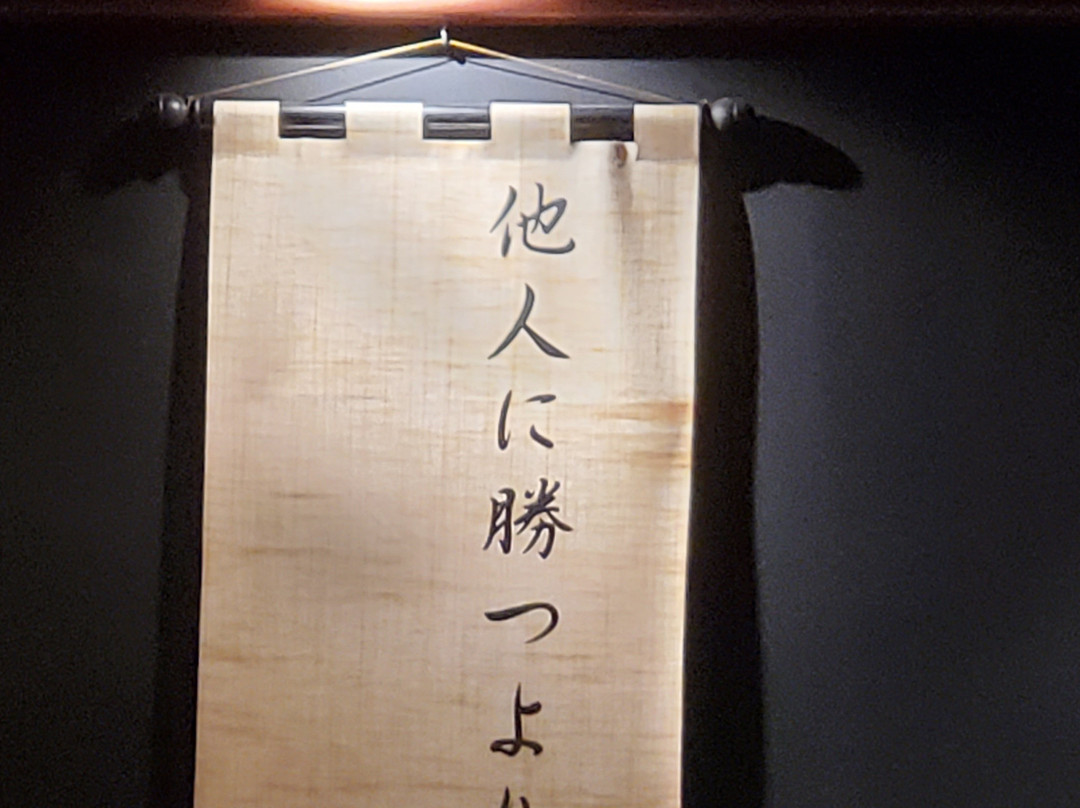 他人に勝つよ